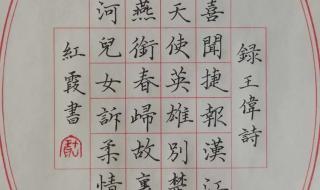 錄王偉詩
喜聞捷報漢江
天使英雄別楚
燕銜春歸故裏
河兒女訴柔情
紅霞書